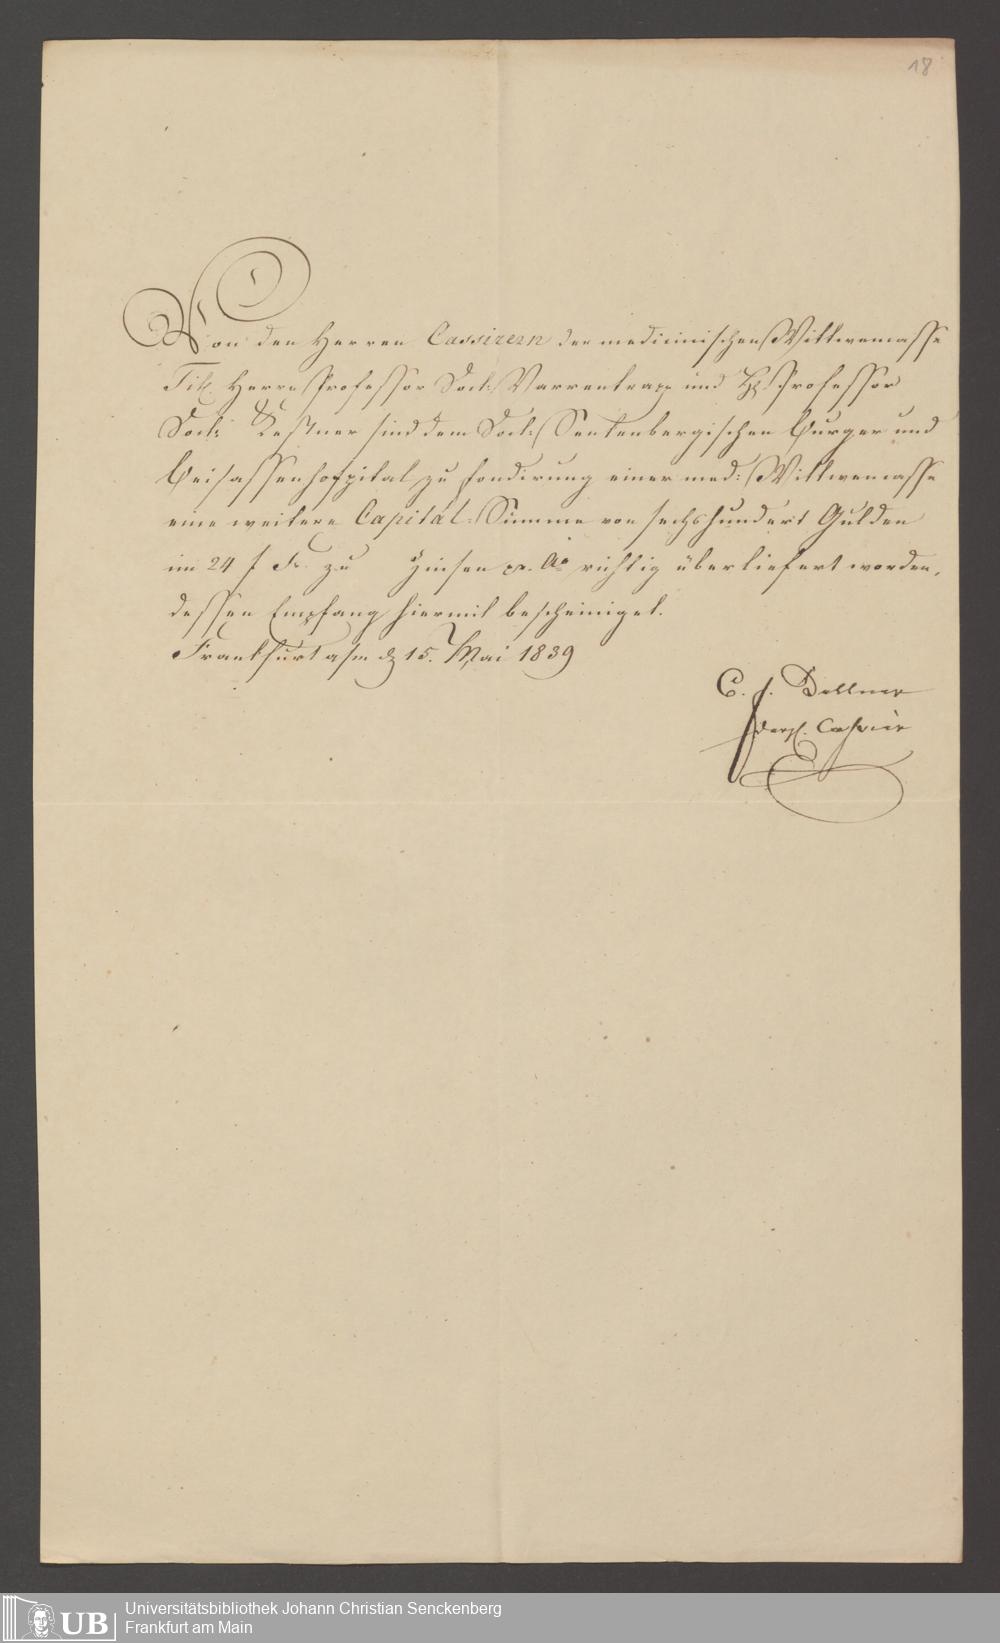 18
Von den Herren Cassirern der medicinischen Wittwencasse
Tit. Herrn Professor Doct: Varrentrapp und H. Professor
Doct: Kestner sind dem Doct: Senkenbergischen Burger und
Beisassenhospital zu fondirung einer med: Wittwencasse
eine weitere Capital-Summe von sechshundert Gulden
im 24 f Fs. zu Zinsen pr. Ao richtig überliefert worden,
dessen Empfang hiermit bescheiniget.
Frankfurt a/m d 15. Mai 1839
C. F. Dellmer
Cassier
UB Universitätsbibliothek Johann Christian Senckenberg
Frankfurt am Main